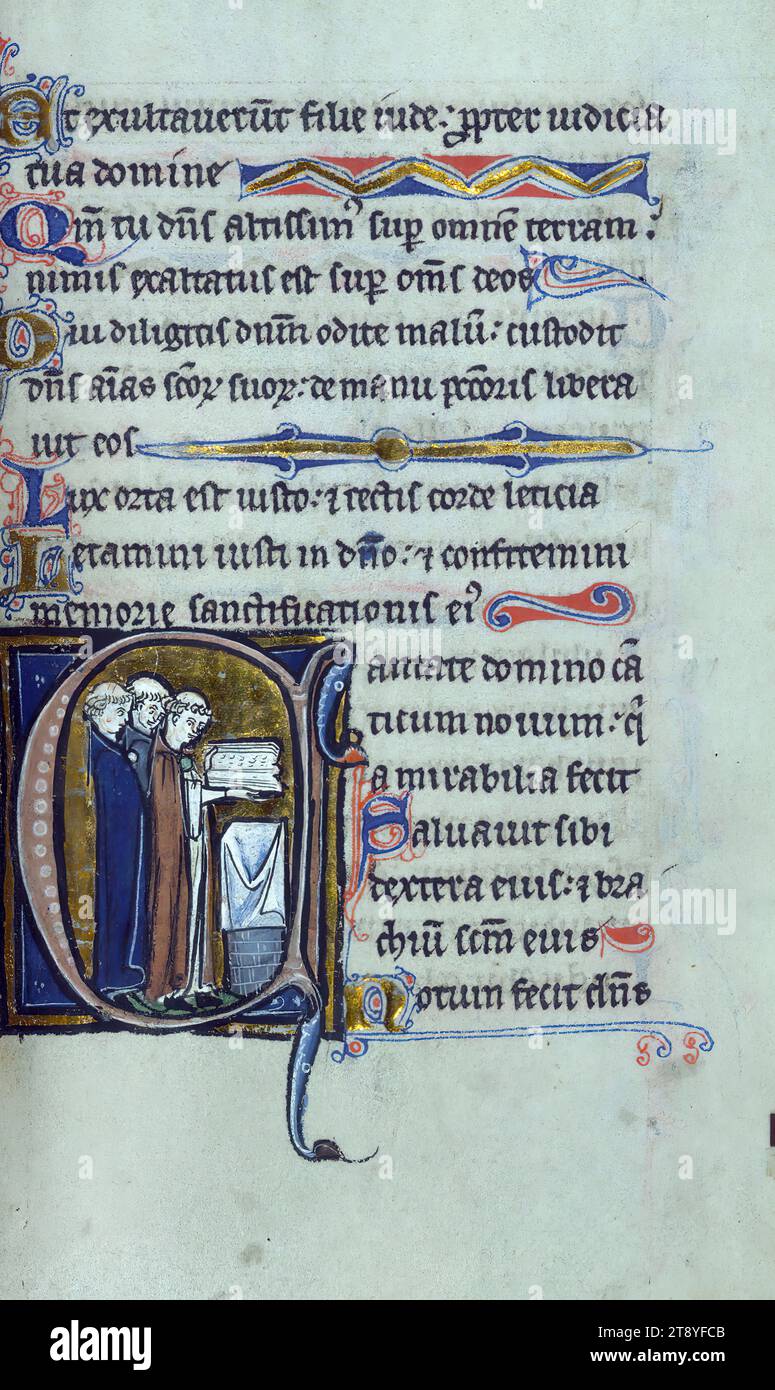 Et exultaverūt filie iude: ꝓpter iudicia
tua domine
Qm̄ tu dn̄s altissimꝰ suꝑ omnē terram:
nimis exaltatus est suꝑ om̄s deos
Qui diligitis dnm̄ odite malū: custodit
dn̄s aīas scōꝝ suoꝝ: de manu pc̄coris libera
uit eos
Lux orta est iusto: ⁊ rectis corde leticia
Letamini iusti in dn̄o: ⁊ confitemini
memorie sanctificationis eiꝰ
Cantate domino cā
ticum nouum: qͥ
a mirabilia fecit
Saluauit sibi
dextera eius: ⁊ bra
chiū scm̄ eius
Notum fecit dn̄s
alamy
Image ID: T8YFCB
www.alamy.com